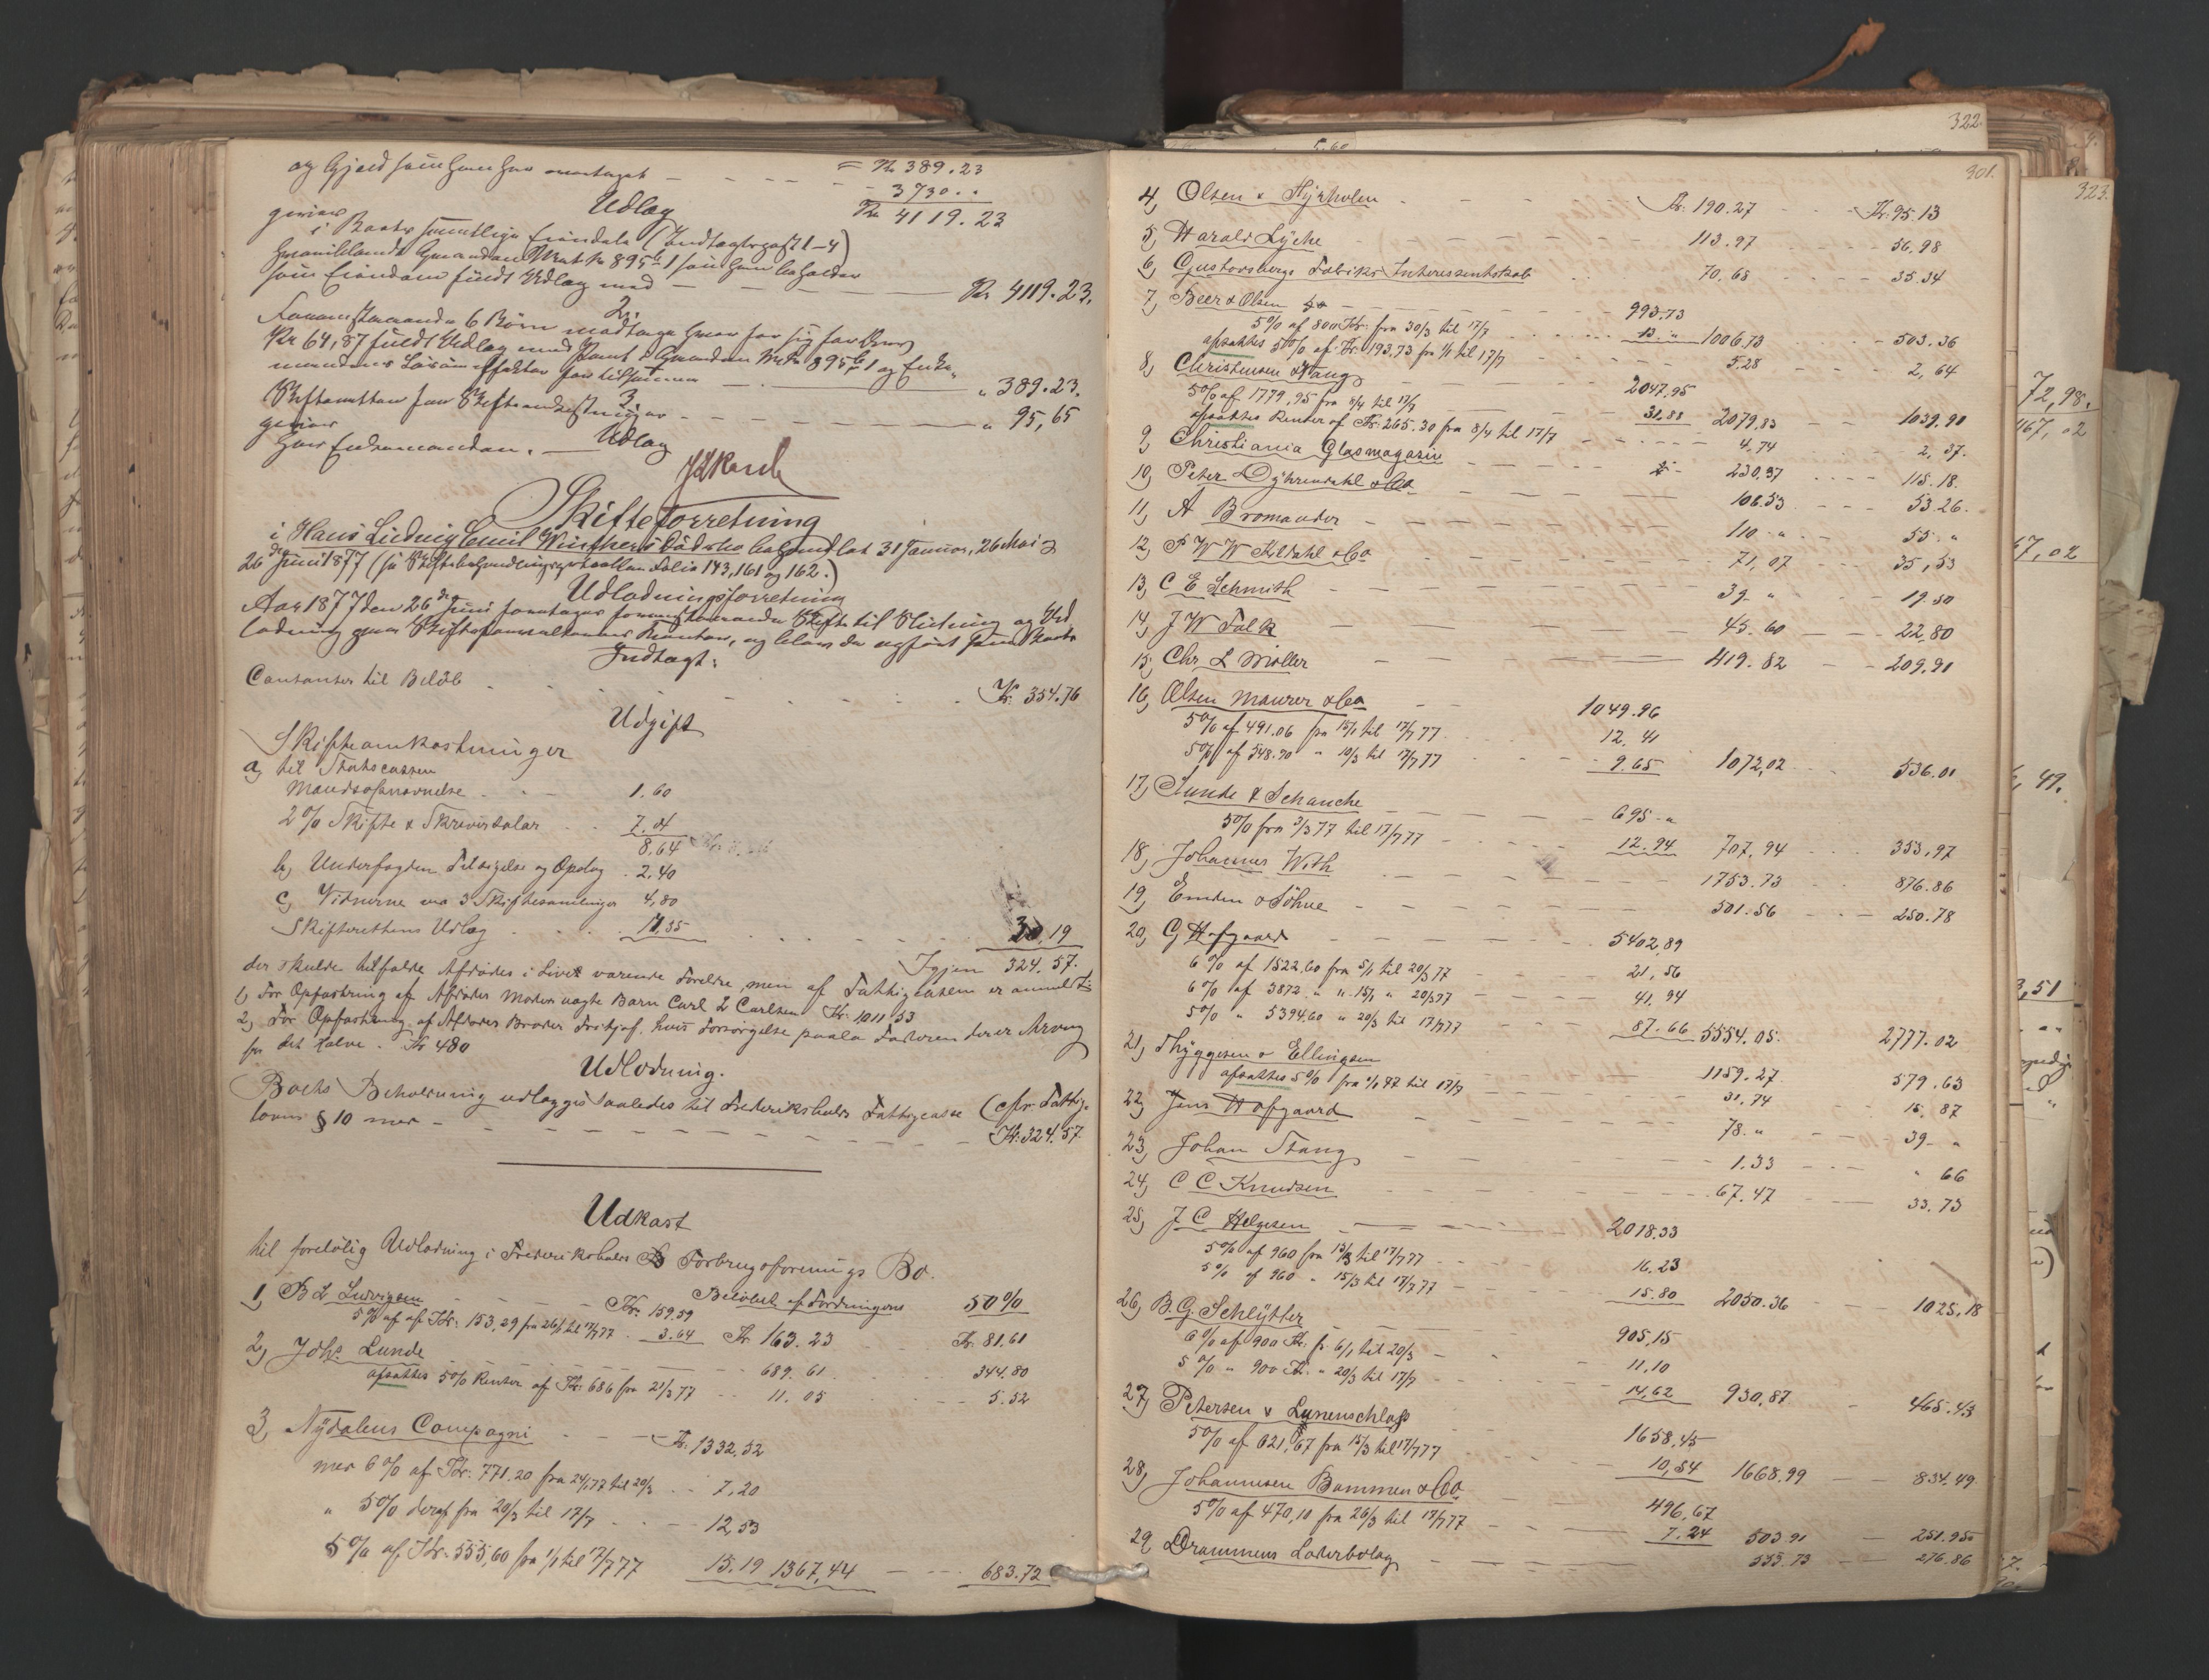 og Gjæld som han har overtaget — = Kr 389.23
3730..
Udlæg Kr 4119.23
gives
i Boets samtlige Eiendele (Indtægtspost 1–4)
som Eiendom fuldt Udlæg med — Kr 4119.23.
2.
6 Børn modtage hver for sig
Kr 64,87 fuldt Udlæg med Pant i Gaarden Mtr No 895b 1 og Enke-
mandens Løsøreeffekter for tilsammen — " 389.23.
3.
Skifteretten for Skifteomkostninger — " 95,65
gives Udlæg
hos Enkemanden.
Skifteforretning
i Hans Ludvig Emil Winthers Dødsbo behandlet 31 Januar, 26 Mai &
26de Juni 1877 (se Skiftebehandlingsprotokollen Folio 143, 161 og 162.)
Udlodningsforretning
Aar 1877 den 26de Juni foretages Skifte til Slutning og Ud
lodning paa Skifteforvalterens Kontor, og blev da opført som Boets
Indtægt:
Contanter til Beløb . . . Kr. 354.76
Udgift
Skifteomkostninger
a, til Statscassen
Mandsopnævnelse . . 1.60
2% Skifte & Skriverdaler . . 7.04
8,64
b, Underfogden Tilsigelse og Opslag . 2.40
c, Vidnerne ved 3 Skiftesamlinger 4,80
Skifterettens Udlæg . . . 14,35 . . . 30,19
Igjen 324.57.
der skulde tilfalde Afdødes i Livet værende Forældre, men af Fattigcassen er anmeldt:
1, For Opfostring af Afdødes Moders uægte Barn Carl L Carlsen Kr. 1011.53
2, For Opfostring af Afdødes Broder Fritjof, hvis Forsørgelse paala Faderen der er Arving
for det halve. Kr 480
Udlodning.
Boets Beholdning udlægges saaledes til Frederikshalds Fattigcasse (cfr. Fattig-
lovens § 10 med — Kr: 324.57.
Udkast
til foreløbig Udlodning i Frederikshalds Forbrugsforenings Bo.
Beløbet af Fordringerne 50%
1, B L Ludvigsen Kr. 159.59
5% af Kr: 153,29 fra 26/1 til 17/7 77 . 3.64 Kr 163.23 Kr. 81.61
2, Johs Lunde — 689.61 . 344.80
afsættes 5% Renter af Kr: 686 fra 21/3 77 11.05 5.52
3, Nydalens Compagni Kr. 1332,52
med 6% af Kr: 771.20 fra 24/1 77 til 20/3 . . 7.20
" 5% deraf fra 20/3 til 17/7 . . 12,53
5% af Kr. 555,60 fra 1/1 til 17/7 77 15.19 1367,44 683.72
322.
301.
323.
4, Olsen & Hyrholen Kr. 190.27 Kr: 95.13
5, Harald Lyche 113.97 56.98
6, Gustavsbergs Fabriks Interessentskab 70.68 35.34
7, Beer & Olsen 993.73
5% af 800 Kr. fra 30/3 til 17/7 13. " 1006.73 503.36
afsættes 5% af Kr: 193.73 fra 1/1 til 17/7 5.28 2,64
8, Christensen & Stang 2047.95
5% af 1779,95 fra 8/4 til 17/7 31.88 2079,83 1039.91
afsættes Renter af Kr: 265.30 fra 8/4 til 17/7 4,74 2,37.
9, Christiania Glasmagasin 230.37 115.18.
10, Peter Dyhrendahl & Co 106.53 53.26.
11, A Bromander 110. " 55. "
12, P W W Kildahl & Co 71,07 35,53
13, C E Schmith 39- " 19.50
14, J W Falk 45.60 22,80
15, Chr L Møller 419.82 209.91
16, Olsen Maurer & Co 1049.96
5% af 491.06 fra 15/1 til 17/7 77 12,41
5% af 548.90 " 10/3 til 17/7 77 9.65 1072,02 536.01
17, Lunde & Schanche 695 - "
5% fra 3/3 77 til 17/7 77 12.94 707.94 353,97
18, Johannes With 1753.73 876.86
19, Emden & Söhne 501.56 250.78
20, G Hofgaard 5402,89
6% af 1522,60 fra 5/1 til 20/3 77 21,56
6% af 3872. " " 15/1 " 20/3 77 41,94
5% " 5394.60 " 20/3 til 17/7 77 87.66 5554.05. 2777.02
21, Thyggesen & Ellingsen 1159.27 579.63
afsættes 5% fra 1/1 77 til 17/7 31.74 15,87
22, Jens Hofgaard 78. " 39- "
23, Johan Stang 1.33 " 66
24, C C Knudsen 67.47 33.73
25, J C Helgesen 2018.33
5% af 960 fra 13/3 til 17/7 77 16.23
5% af 960 " 15/3 til 17/7 77 15.80 2050.36 1025,18
26, B. G. Schlytter 905,15
6% af 900 Kr. fr. 6/1 til 20/3 11.10
5% " 900 Kr. " 20/3 til 17/7 14,62 930,87 465.43
27, Petersen & Lunenschlos 1658,45
5% af 621,67 fra 15/3 til 17/7 77 10,54 1668.99 834.49
28, Johannesen Bommen & Co 496,67
5% af 470,10 fra 26/3 til 17/7 77 7.24 503.91 251.95
29, Drammens Læderbolag 553.73 276.86